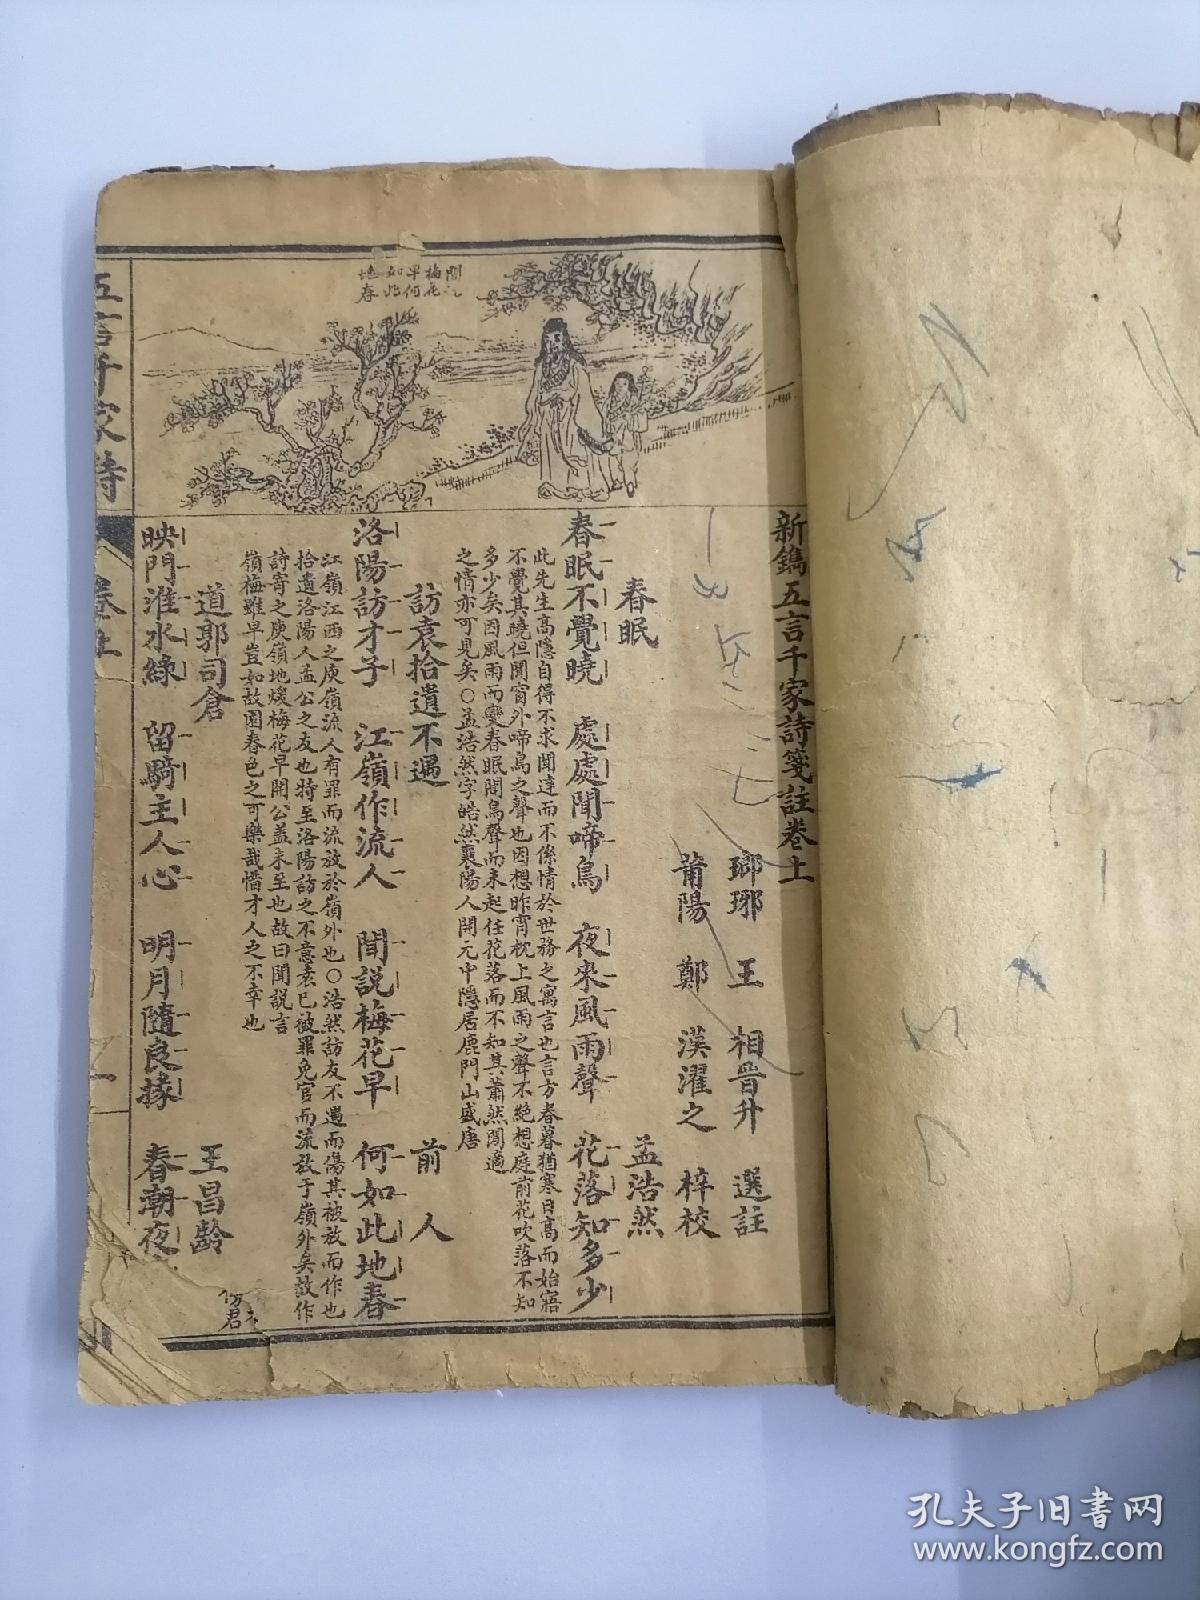 新鐫五言千家詩箋註卷上
瑯琊 王 相晉升 選註
莆陽 鄭 漢濯之 梓校
春眠 孟浩然
春眠不覺曉 處處聞啼鳥 夜來風雨聲 花落知多少
此先生高隱自得不求聞達而不係情於世務之寓言也言方春暮猶寒日高而始寤
不覺其曉但聞窗外啼鳥之聲也因想昨宵枕上風雨之聲不絶想庭前花吹落不知
多少矣因風雨而變春眠聞鳥聲而未起任花落而不知其蕭然閒適
之情亦可見矣○孟浩然字皓然襄陽人開元中隱居鹿門山盛唐
訪袁拾遺不遇 前人
洛陽訪才子 江嶺作流人 聞説梅花早 何如此地春
江嶺江西之庾嶺流人有罪而流放於嶺外也○浩然訪友不遇而傷其被放而作也
拾遺洛陽人孟公之友也特至洛陽訪之不意袁已被罪免官而流放于嶺外矣故作
詩寄之庾嶺地煖梅花早開公蓋未至也故曰聞説言
嶺梅雖早豈如故園春色之可樂哉惜才人之不幸也
道郭司倉 王昌齡
映門淮水綠 留騎主人心 明月隨良掾 春潮夜
聞
梅花
早何
如此
地春
五言千家詩
卷上
一
孔夫子旧书网
www.kongfz.com